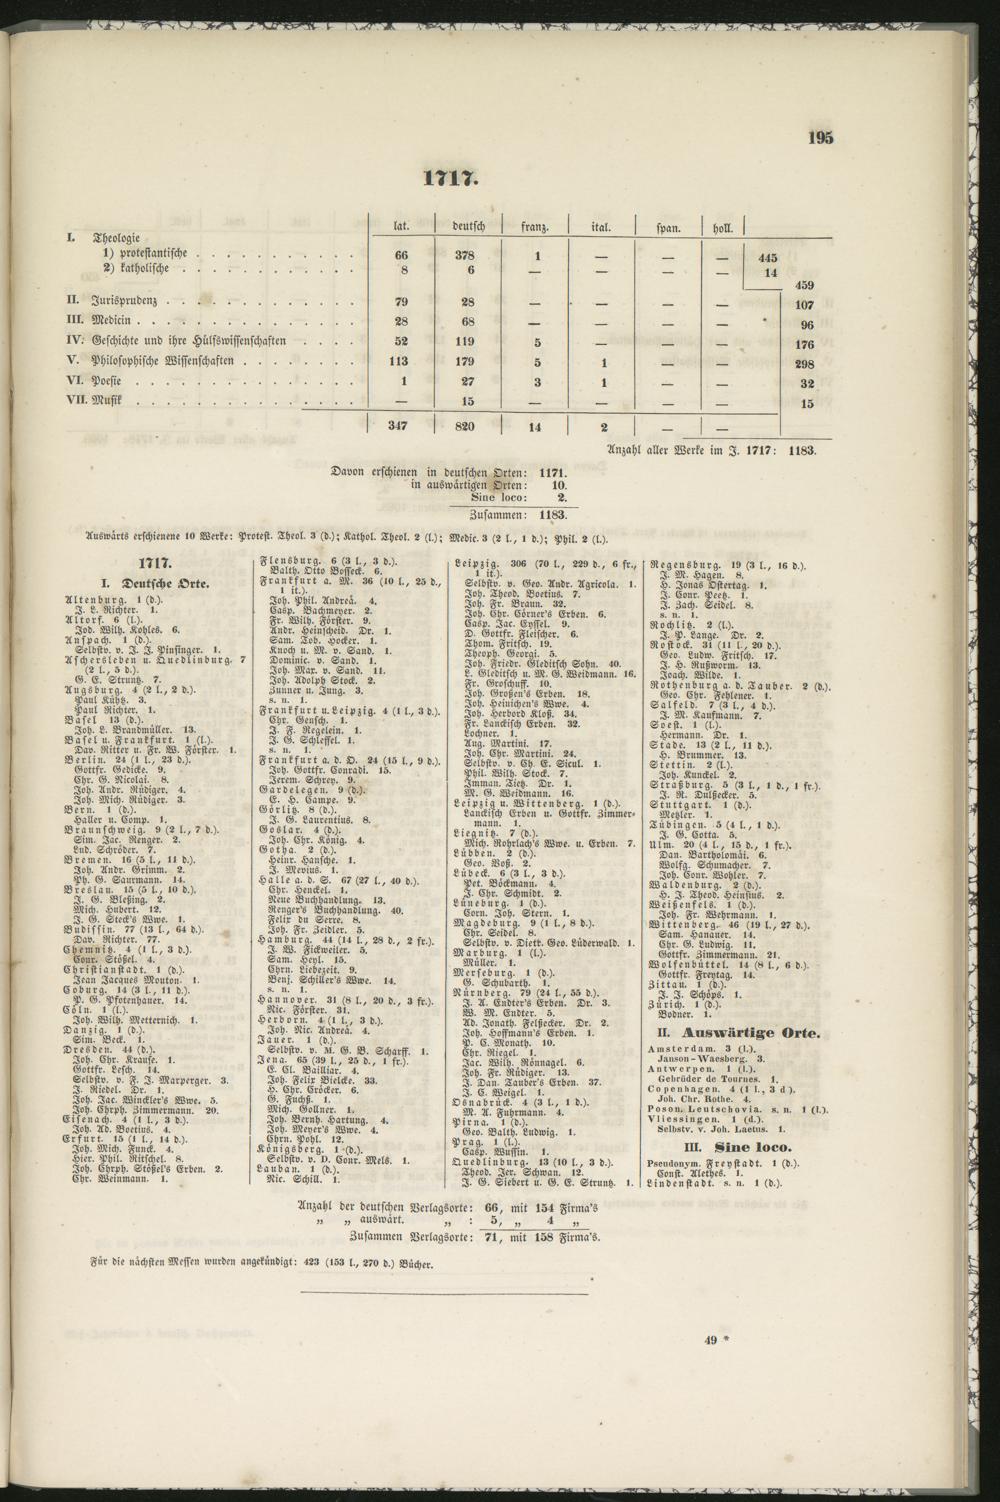 195
1717.
lat. deutsch franz. ital. span. holl.
I. Theologie
1) protestantische . . . . . . . . . . . 66 378 1 — — — 445
2) katholische . . . . . . . . . . . . 8 6 — — — — 14
459
II. Jurisprudenz . . . . . . . . . . . . 79 28 — — — — 107
III. Medicin . . . . . . . . . . . . . . 28 68 — — — — 96
IV. Geschichte und ihre Hülfswissenschaften . . . . 52 119 5 — — — 176
V. Philosophische Wissenschaften . . . . . . . 113 179 5 1 — — 298
VI. Poesie . . . . . . . . . . . . . . 1 27 3 1 — — 32
VII. Musik . . . . . . . . . . . . . . — 15 — — — — 15
347 820 14 2 — —
Anzahl aller Werke im J. 1717: 1183.
Davon erschienen in deutschen Orten: 1171.
in auswärtigen Orten: 10.
Sine loco: 2.
Zusammen: 1183.
Auswärts erschienene 10 Werke: Protest. Theol. 3 (d.); Kathol. Theol. 2 (l.); Medic. 3 (2 l., 1 d.); Phil. 2 (l.).
1717.
I. Deutsche Orte.
Altenburg. 1 (d.).
J. L. Richter. 1.
Altorf. 6 (l.).
Jod. Wilh. Kohles. 6.
Anspach. 1 (d.).
Selbstv. v. J. J. Pinsinger. 1.
Aschersleben u. Quedlinburg. 7
(2 l., 5 d.).
G. E. Struntz. 7.
Augsburg. 4 (2 l., 2 d.).
Paul Kühtz. 3.
Paul Richter. 1.
Basel 13 (d.).
Joh. L. Brandmüller. 13.
Basel u. Frankfurt. 1 (l.).
Dav. Ritter u. Fr. W. Förster. 1.
Berlin. 24 (1 l., 23 d.).
Gottfr. Gedicke. 9.
Chr. G. Nicolai. 8.
Joh. Andr. Rüdiger. 4.
Joh. Mich. Rüdiger. 3.
Bern. 1 (d.).
Haller u. Comp. 1.
Braunschweig. 9 (2 l., 7 d.).
Sim. Jac. Renger. 2.
Lud. Schröder. 7.
Bremen. 16 (5 l., 11 d.).
Joh. Andr. Grimm. 2.
Ph. G. Saurmann. 14.
Breslau. 15 (5 l., 10 d.).
J. G. Bleßing. 2.
Mich. Hubert. 12.
J. G. Steck's Wwe. 1.
Budissin. 77 (13 l., 64 d.).
Dav. Richter. 77.
Chemnitz. 4 (1 l., 3 d.).
Conr. Stößel. 4.
Christianstadt. 1 (d.).
Jean Jacques Mouton. 1.
Coburg. 14 (3 l., 11 d.).
P. G. Pfotenhauer. 14.
Cöln. 1 (l.).
Joh. Wilh. Metternich. 1.
Danzig. 1 (d.).
Sim. Beck. 1.
Dresden. 44 (d.).
Joh. Chr. Krause. 1.
Gottfr. Lesch. 14.
Selbstv. v. F. J. Marperger. 3.
J. Riedel. Dr. 1.
Joh. Jac. Winckler's Wwe. 5.
Joh. Chrph. Zimmermann. 20.
Eisenach. 4 (1 l., 3 d.).
Joh. Ad. Boetius. 4.
Erfurt. 15 (1 l., 14 d.).
Joh. Mich. Funck. 4.
Hier. Phil. Ritschel. 8.
Joh. Chrph. Stößel's Erben. 2.
Chr. Weinmann. 1.
Flensburg. 6 (3 l., 3 d.).
Balth. Otto Bosseck. 6.
Frankfurt a. M. 36 (10 l., 25 d.,
1 it.).
Joh. Phil. Andreä. 4.
Casp. Bachmeyer. 2.
Fr. Wilh. Förster. 9.
Andr. Heinscheid. Dr. 1.
Sam. Tob. Hocker. 1.
Knoch u. M. v. Sand. 1.
Dominic. v. Sand. 1.
Joh. Max. v. Sand. 11.
Joh. Adolph Stock. 2.
Zunner u. Jung. 3.
s. n. 1.
Frankfurt u. Leipzig. 4 (1 l., 3 d.).
Chr. Gensch. 1.
J. F. Regelein. 1.
J. G. Schleffel. 1.
s. n. 1.
Frankfurt a. d. O. 24 (15 l., 9 d.).
Joh. Gottfr. Conradi. 15.
Jerem. Schrey. 9.
Gardelegen. 9 (d.).
E. H. Campe. 9.
Görlitz. 8 (d.).
J. G. Laurentius. 8.
Goslar. 4 (d.).
Joh. Chr. König. 4.
Gotha. 2 (d.).
Heinr. Hansche. 1.
J. Mevius. 1.
Halle a. d. S. 67 (27 l., 40 d.).
Chr. Henckel. 1.
Neue Buchhandlung. 13.
Renger's Buchhandlung. 40.
Felix du Serre. 8.
Joh. Fr. Zeidler. 5.
Hamburg. 44 (14 l., 28 d., 2 fr.).
J. W. Fickweiler. 5.
Sam. Heyl. 15.
Chrn. Liebezeit. 9.
Benj. Schiller's Wwe. 14.
s. n. 1.
Hannover. 31 (8 l., 20 d., 3 fr.).
Nic. Förster. 31.
Herborn. 4 (1 l., 3 d.).
Joh. Nic. Andreä. 4.
Jauer. 1 (d.).
Selbstv. v. M. G. B. Scharff. 1.
Jena. 65 (39 l., 25 d., 1 fr.).
E. Cl. Bailliar. 4.
Joh. Felix Bielcke. 33.
D. Chr. Cröcker. 6.
G. Fuchß. 1.
Mich. Gollner. 1.
Joh. Bernh. Hartung. 4.
Joh. Meyer's Wwe. 4.
Chrn. Pohl. 12.
Königsberg. 1 (d.).
Selbstv. v. D. Conr. Mels. 1.
Lauban. 1 (d.).
Nic. Schill. 1.
Leipzig. 306 (70 l., 229 d., 6 fr.,
1 it.).
Selbstv. v. Geo. Andr. Agricola. 1.
Joh. Theod. Boetius. 7.
Joh. Fr. Braun. 32.
Joh. Chr. Cörner's Erben. 6.
Casp. Jac. Eyssel. 9.
D. Gottfr. Fleischer. 6.
Thom. Fritsch. 19.
Theoph. Georgi. 5.
Joh. Friedr. Gleditsch Sohn. 40.
L. Gleditsch u. M. G. Weidmann. 16.
Fr. Groschuff. 10.
Joh. Großen's Erben. 18.
Joh. Heinichen's Wwe. 4.
Joh. Herbord Kloß. 34.
Fr. Lanckisch Erben. 32.
Lochner. 1.
Aug. Martini. 17.
Joh. Chr. Martini. 24.
Selbstv. v. Ch. E. Sicul. 1.
Phil. Wilh. Stock. 7.
Imman. Tietz. Dr. 1.
M. G. Weidmann. 16.
Leipzig u. Wittenberg. 1 (d.).
Lanckisch Erben u. Gottfr. Zimmer-
mann. 1.
Liegnitz. 7 (d.).
Mich. Rohrlach's Wwe. u. Erben. 7.
Lübben. 2 (d.).
Geo. Voß. 2.
Lübeck. 6 (3 l., 3 d.).
Pet. Böckmann. 4.
J. Chr. Schmidt. 2.
Lüneburg. 1 (d.).
Corn. Joh. Stern. 1.
Magdeburg. 9 (1 l., 8 d.).
Chr. Seidel. 8.
Selbstv. v. Dietr. Geo. Lüderwald. 1.
Marburg. 1 (l.).
Müller. 1.
Merseburg. 1 (d.).
G. Schubarth. 1.
Nürnberg. 79 (24 l., 55 d.).
J. A. Endter's Erben. Dr. 3.
W. M. Endter. 5.
Ad. Jonath. Felßecker. Dr. 2.
Joh. Hoffmann's Erben. 1.
P. C. Monath. 10.
Chr. Riegel. 1.
Jac. Wilh. Rönnagel. 6.
Joh. Fr. Rüdiger. 13.
J. Dan. Tauber's Erben. 37.
J. C. Weigel. 1.
Osnabrück. 4 (3 l., 1 d.).
M. A. Fuhrmann. 4.
Pirna. 1 (d.).
Geo. Balth. Ludwig. 1.
Prag. 1 (l.).
Casp. Wussin. 1.
Quedlinburg. 13 (10 l., 3 d.).
Theod. Jer. Schwan. 12.
J. G. Siebert u. G. E. Struntz. 1.
Regensburg. 19 (3 l., 16 d.).
J. M. Hagen. 8.
H. Jonas Ostertag. 1.
J. Conr. Peetz. 1.
J. Zach. Seidel. 8.
s. n. 1.
Rochlitz. 2 (l.).
J. P. Lange. Dr. 2.
Rostock. 31 (11 l., 20 d.).
Geo. Ludw. Fritsch. 17.
J. H. Rußworm. 13.
Joach. Wilde. 1.
Rothenburg a. d. Tauber. 2 (d.).
Geo. Chr. Fehlener. 1.
Salfeld. 7 (3 l., 4 d.).
J. M. Kaufmann. 7.
Soest. 1 (l.).
Hermann. Dr. 1.
Stade. 13 (2 l., 11 d.).
H. Brummer. 13.
Stettin. 2 (l.).
Joh. Kunckel. 2.
Straßburg. 5 (3 l., 1 d., 1 fr.).
J. R. Dulßecker. 5.
Stuttgart. 1 (d.).
Metzler. 1.
Tübingen. 5 (4 l., 1 d.).
J. G. Cotta. 5.
Ulm. 20 (4 l., 15 d., 1 fr.).
Dan. Bartholomäi. 6.
Wolfg. Schumacher. 7.
Joh. Conr. Wohler. 7.
Waldenburg. 2 (d.).
H. J. Theod. Heinsius. 2.
Weißenfels. 1 (d.).
Joh. Fr. Wehrmann. 1.
Wittenberg. 46 (19 l., 27 d.).
Sam. Hanauer. 14.
Chr. G. Ludwig. 11.
Gottfr. Zimmermann. 21.
Wolfenbüttel. 14 (8 l., 6 d.).
Gottfr. Freytag. 14.
Zittau. 1 (d.).
J. J. Schöps. 1.
Zürich. 1 (d.).
Bodner. 1.
II. Auswärtige Orte.
Amsterdam. 3 (l.).
Janson-Waesberg. 3.
Antwerpen. 1 (l.).
Gebrüder de Tournes. 1.
Copenhagen. 4 (1 l., 3 d).
Joh. Chr. Rothe. 4.
Poson. Leutschovia. s. n. 1 (l.).
Vliessingen. 1 (d.).
Selbstv. v. Joh. Laetus. 1.
III. Sine loco.
Pseudonym. Freystadt. 1 (d.).
Const. Alethes. 1.
Lindenstadt. s. n. 1 (d.).
Anzahl der deutschen Verlagsorte: 66, mit 154 Firma's
„ „ auswärt. „ : 5, „ 4 „
Zusammen Verlagsorte: 71, mit 158 Firma's.
Für die nächsten Messen wurden angekündigt: 423 (153 l., 270 d.) Bücher.
49 *